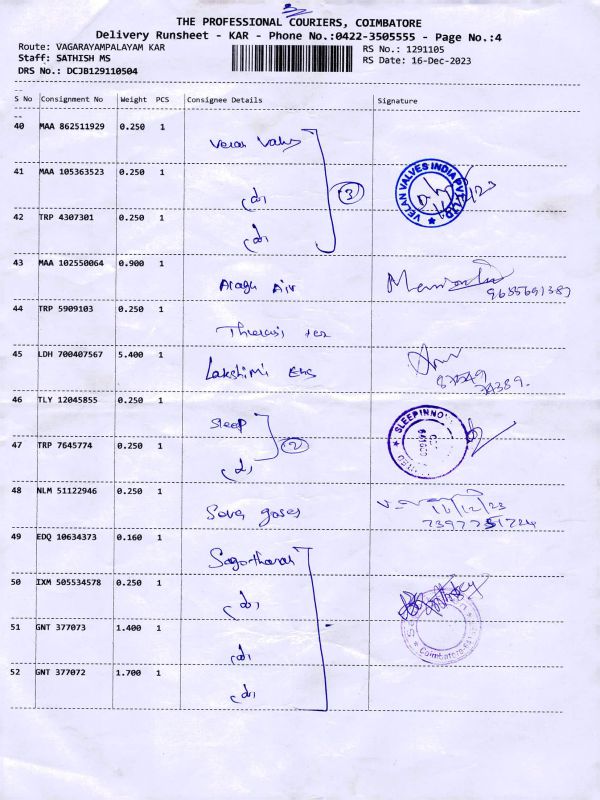 THE PROFESSIONAL COURIERS, COIMBATORE
Delivery Runsheet - KAR - Phone No.:0422-3505555 - Page No.:4
Route: VAGARAYAMPALAYAM KAR RS No.: 1291105
Staff: SATHISH MS RS Date: 16-Dec-2023
DRS No.: DCJB129110504
S No Consignment No Weight PCS Consignee Details Signature
40 MAA 862511929 0.250 1 Velan Valves
41 MAA 105363523 0.250 1 3 VELAN VALVES INDIA PVT. LTD
42 TRP 4307301 0.250 1
43 MAA 102550064 0.900 1 Air
9655691387
44 TRP 5909103 0.250 1
45 LDH 700407567 5.400 1 Lakshimi
46 TLY 12045855 0.250 1 Sleep
47 TRP 7645774 0.250 1 2 SLEEPINNO
48 NLM 51122946 0.250 1 16/12/23
49 EDQ 10634373 0.160 1
50 IXM 505534578 0.250 1
51 GNT 377073 1.400 1 Coimbatore
52 GNT 377072 1.700 1